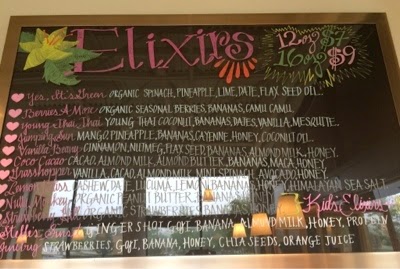 Elixirs
12oz $7
16oz $9
Yes, It's Green ORGANIC SPINACH, PINEAPPLE, LIME, DATE, FLAX SEED OIL..
Berries & More ORGANIC SEASONAL BERRIES, BANANAS, CAMU CAMU.
Young Thai, Thai YOUNG THAI COCONUT, BANANAS, DATES, VANILLA, MESQUITE..
MANGO, PINEAPPLE, BANANAS, CAYENNE, HONEY, COCONUT OIL...
Vanilla CINNAMON, NUTMEG, FLAX SEED, BANANAS, ALMOND MILK, HONEY.
Coco Cacao CACAO, ALMOND MILK, ALMOND BUTTER, BANANAS, MACA, HONEY
Grasshopper VANILLA, CACAO, ALMOND MILK, MINT, SPINACH, AVOCADO, HONEY
Lemon CASHEW, DATE, LUCUMA, LEMON, BANANAS, HONEY, HIMALAYAN SEA SALT
ORGANIC BUTTER BANANAS
Kids Elixirs
GINGER SHOT GOJI, BANANA, ALMOND MILK, HONEY, PROTEIN
STRAWBERRIES, GOJI, BANANA, HONEY, CHIA SEEDS, ORANGE JUICE